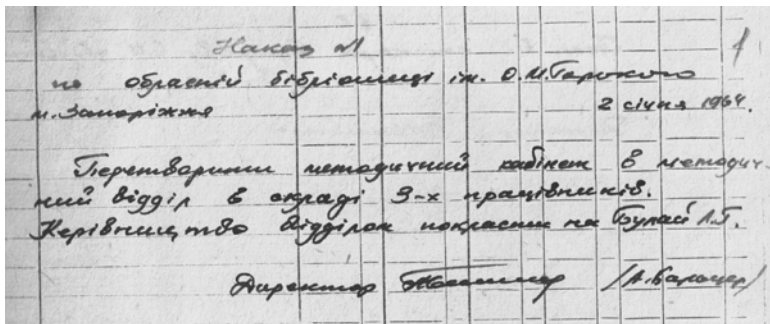 Наказ №1
1
по обласній бібліотеці ім. О.М.Горького
м. Запоріжжя 2 січня 1964.
Перетворити методичний кабінет в методич-
ний відділ в складі 3-х працівників.
Керівництво відділом покласти на Булай Л.Г.
Директор